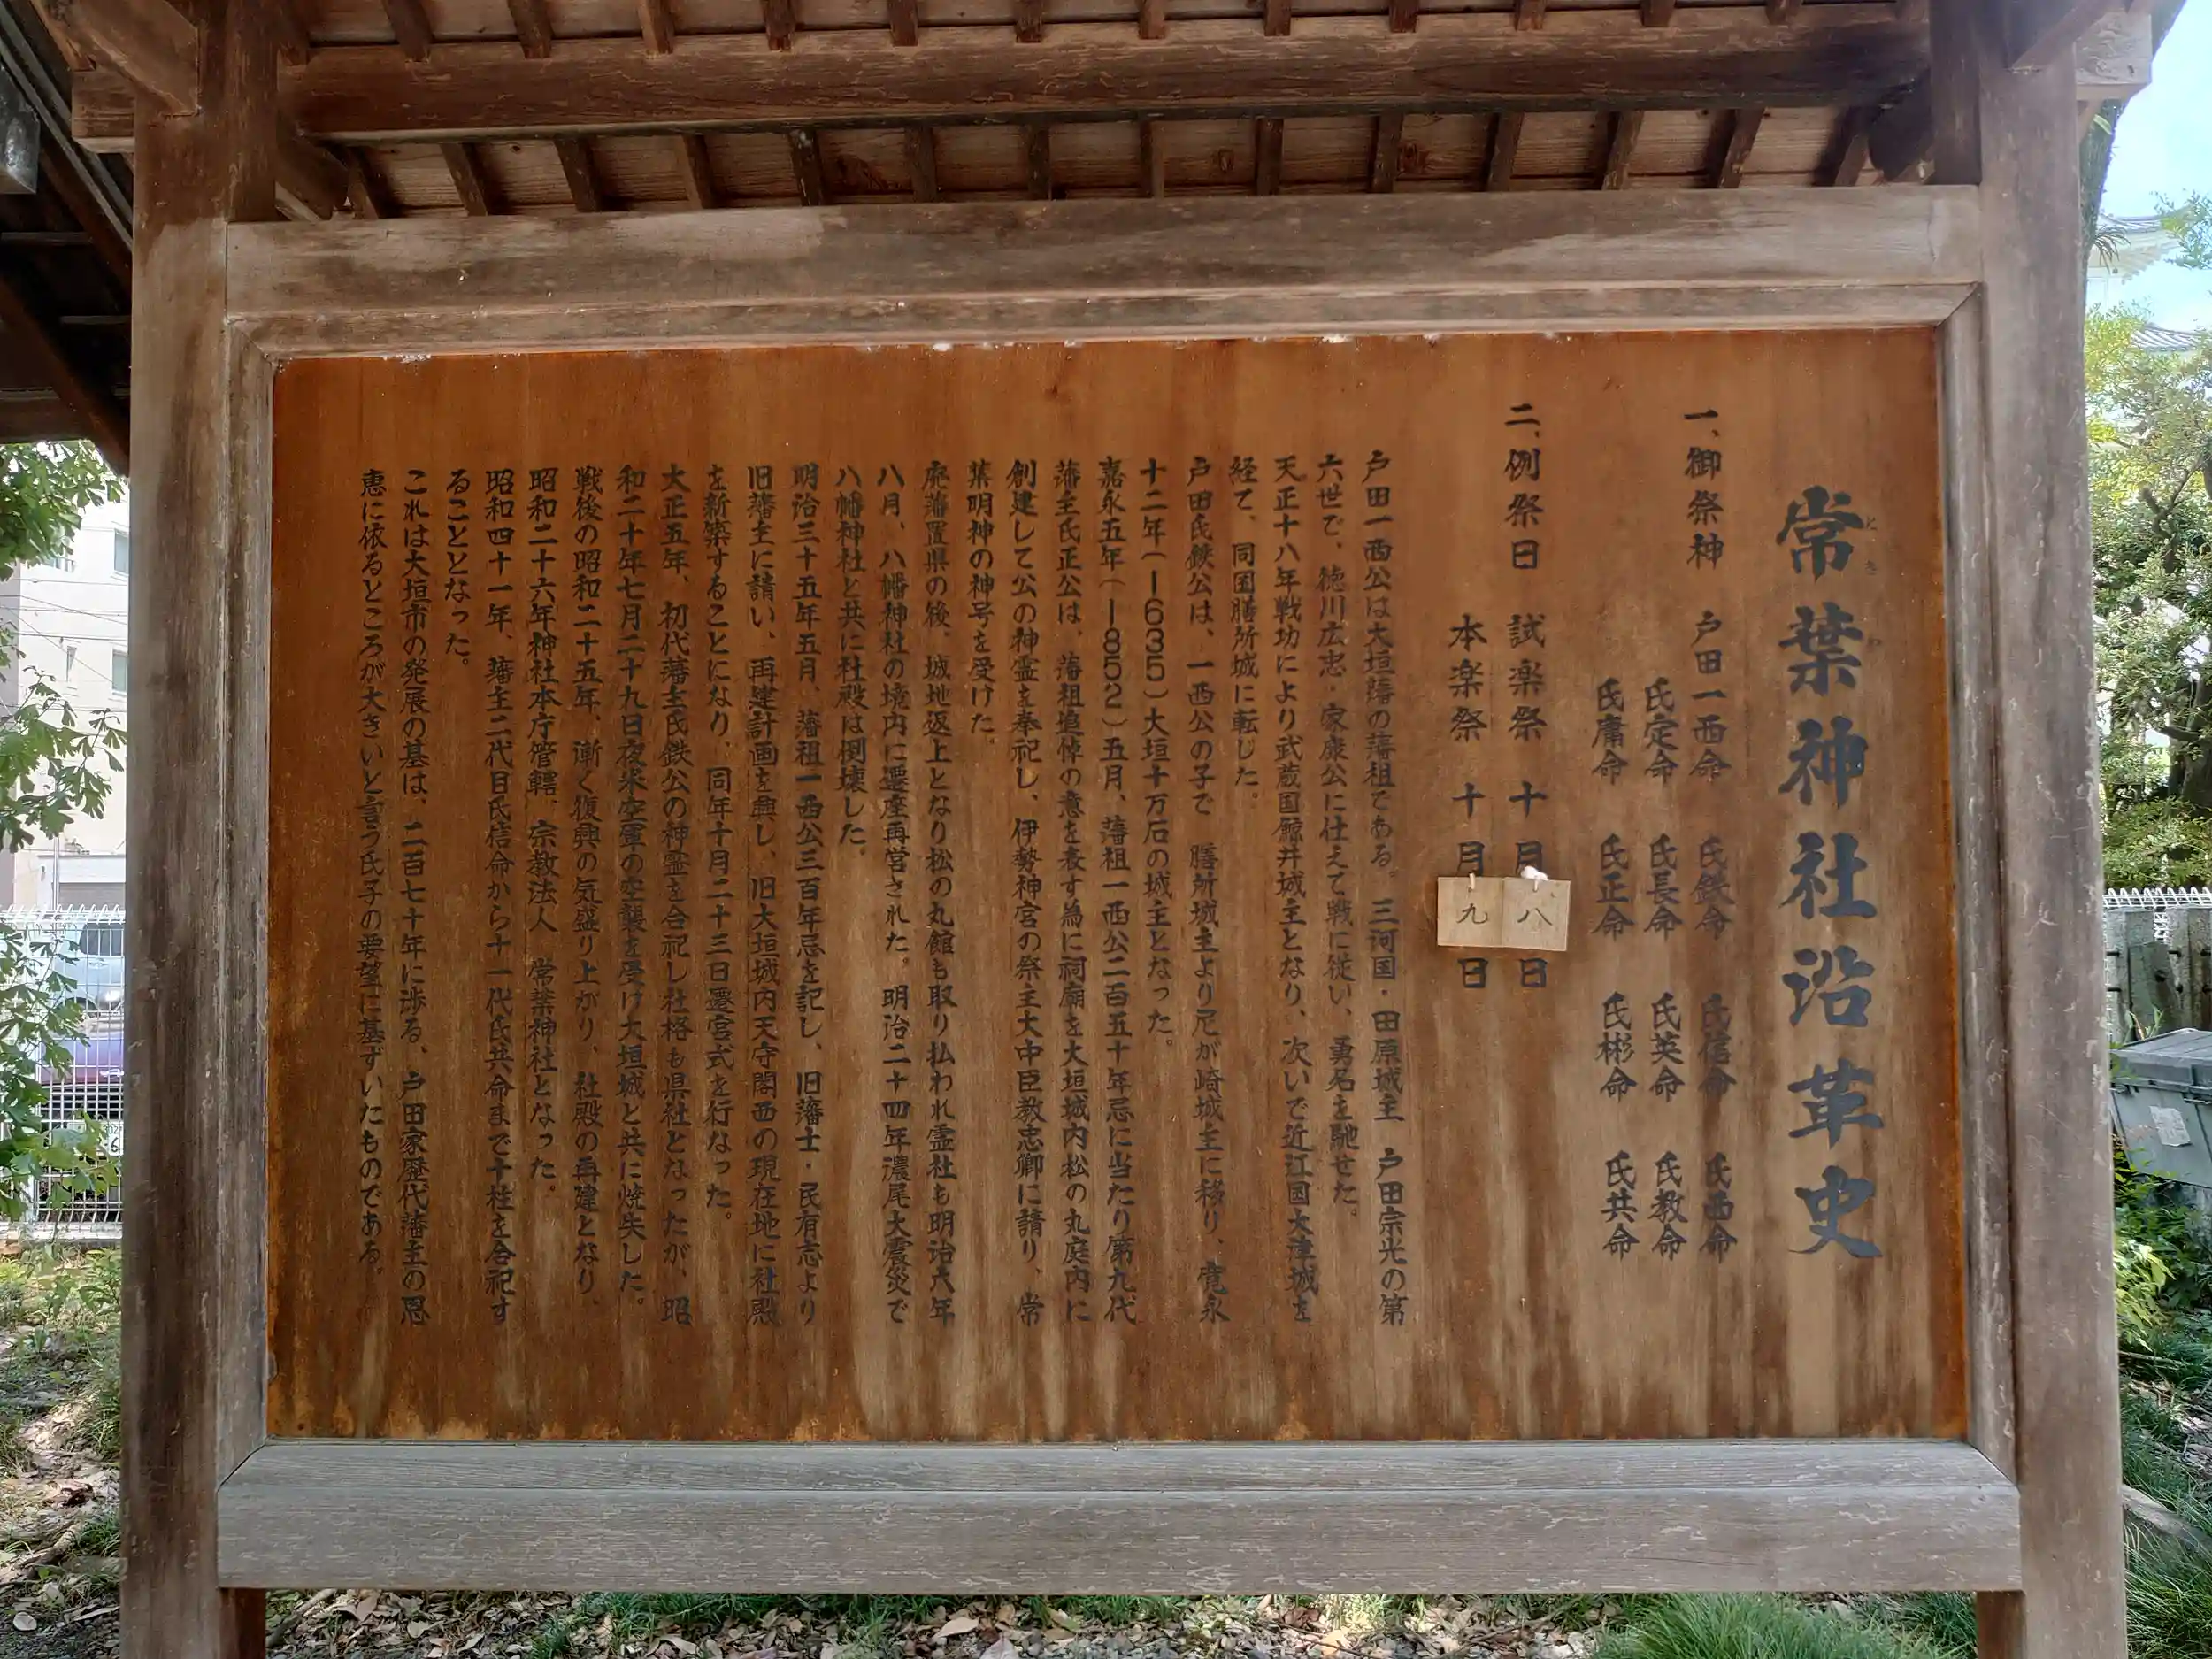 常葉神社沿革史
ときわ
一、御祭神　戸田一西命　氏鉄命　氏信命　氏西命
氏定命　氏長命　氏英命　氏教命
氏庸命　氏正命　氏彬命　氏共命
二、例祭日　試楽祭　十月八日
本楽祭　十月九日
戸田一西公は大垣藩の藩祖である。三河国・田原城主　戸田宗光の第
六世で、徳川広忠・家康公に仕えて戦に従い、勇名を馳せた。
天正十八年戦功により武蔵国鯨井城主となり、次いで近江国大津城を
経て、同国膳所城に転じた。
戸田氏鉄公は、一西公の子で　膳所城主より尼が崎城主に移り、寛永
十二年(1635)大垣十万石の城主となった。
嘉永五年(1852)五月、藩祖一西公二百五十年忌に当たり第九代
藩主氏正公は、藩祖追悼の意を表す為に祠廟を大垣城内松の丸庭内に
創建して公の神霊を奉祀し、伊勢神宮の祭主大中臣教忠卿に請り、常
葉明神の神号を受けた。
廃藩置県の後、城地返上となり松の丸館も取り払われ霊社も明治六年
八月、八幡神社の境内に遷座再営された。明治二十四年濃尾大震災で
八幡神社と共に社殿は倒壊した。
明治三十五年五月、藩祖一西公三百年忌を記し、旧藩士・民有志より
旧藩主に請い、再建計画を興し、旧大垣城内天守閣西の現在地に社殿
を新築することになり、同年十月二十三日遷宮式を行なった。
大正五年、初代藩主氏鉄公の神霊を合祀し社格も県社となったが、昭
和二十年七月二十九日夜米空軍の空襲を受け大垣城と共に焼失した。
戦後の昭和二十五年、漸く復興の気盛り上がり、社殿の再建となり、
昭和二十六年神社本庁管轄、宗教法人　常葉神社となった。
昭和四十一年、藩主二代目氏信命から十一代氏共命まで十柱を合祀す
ることとなった。
これは大垣市の発展の基は、二百七十年に渉る、戸田家歴代藩主の恩
恵に依るところが大きいと言う氏子の要望に基ずいたものである。